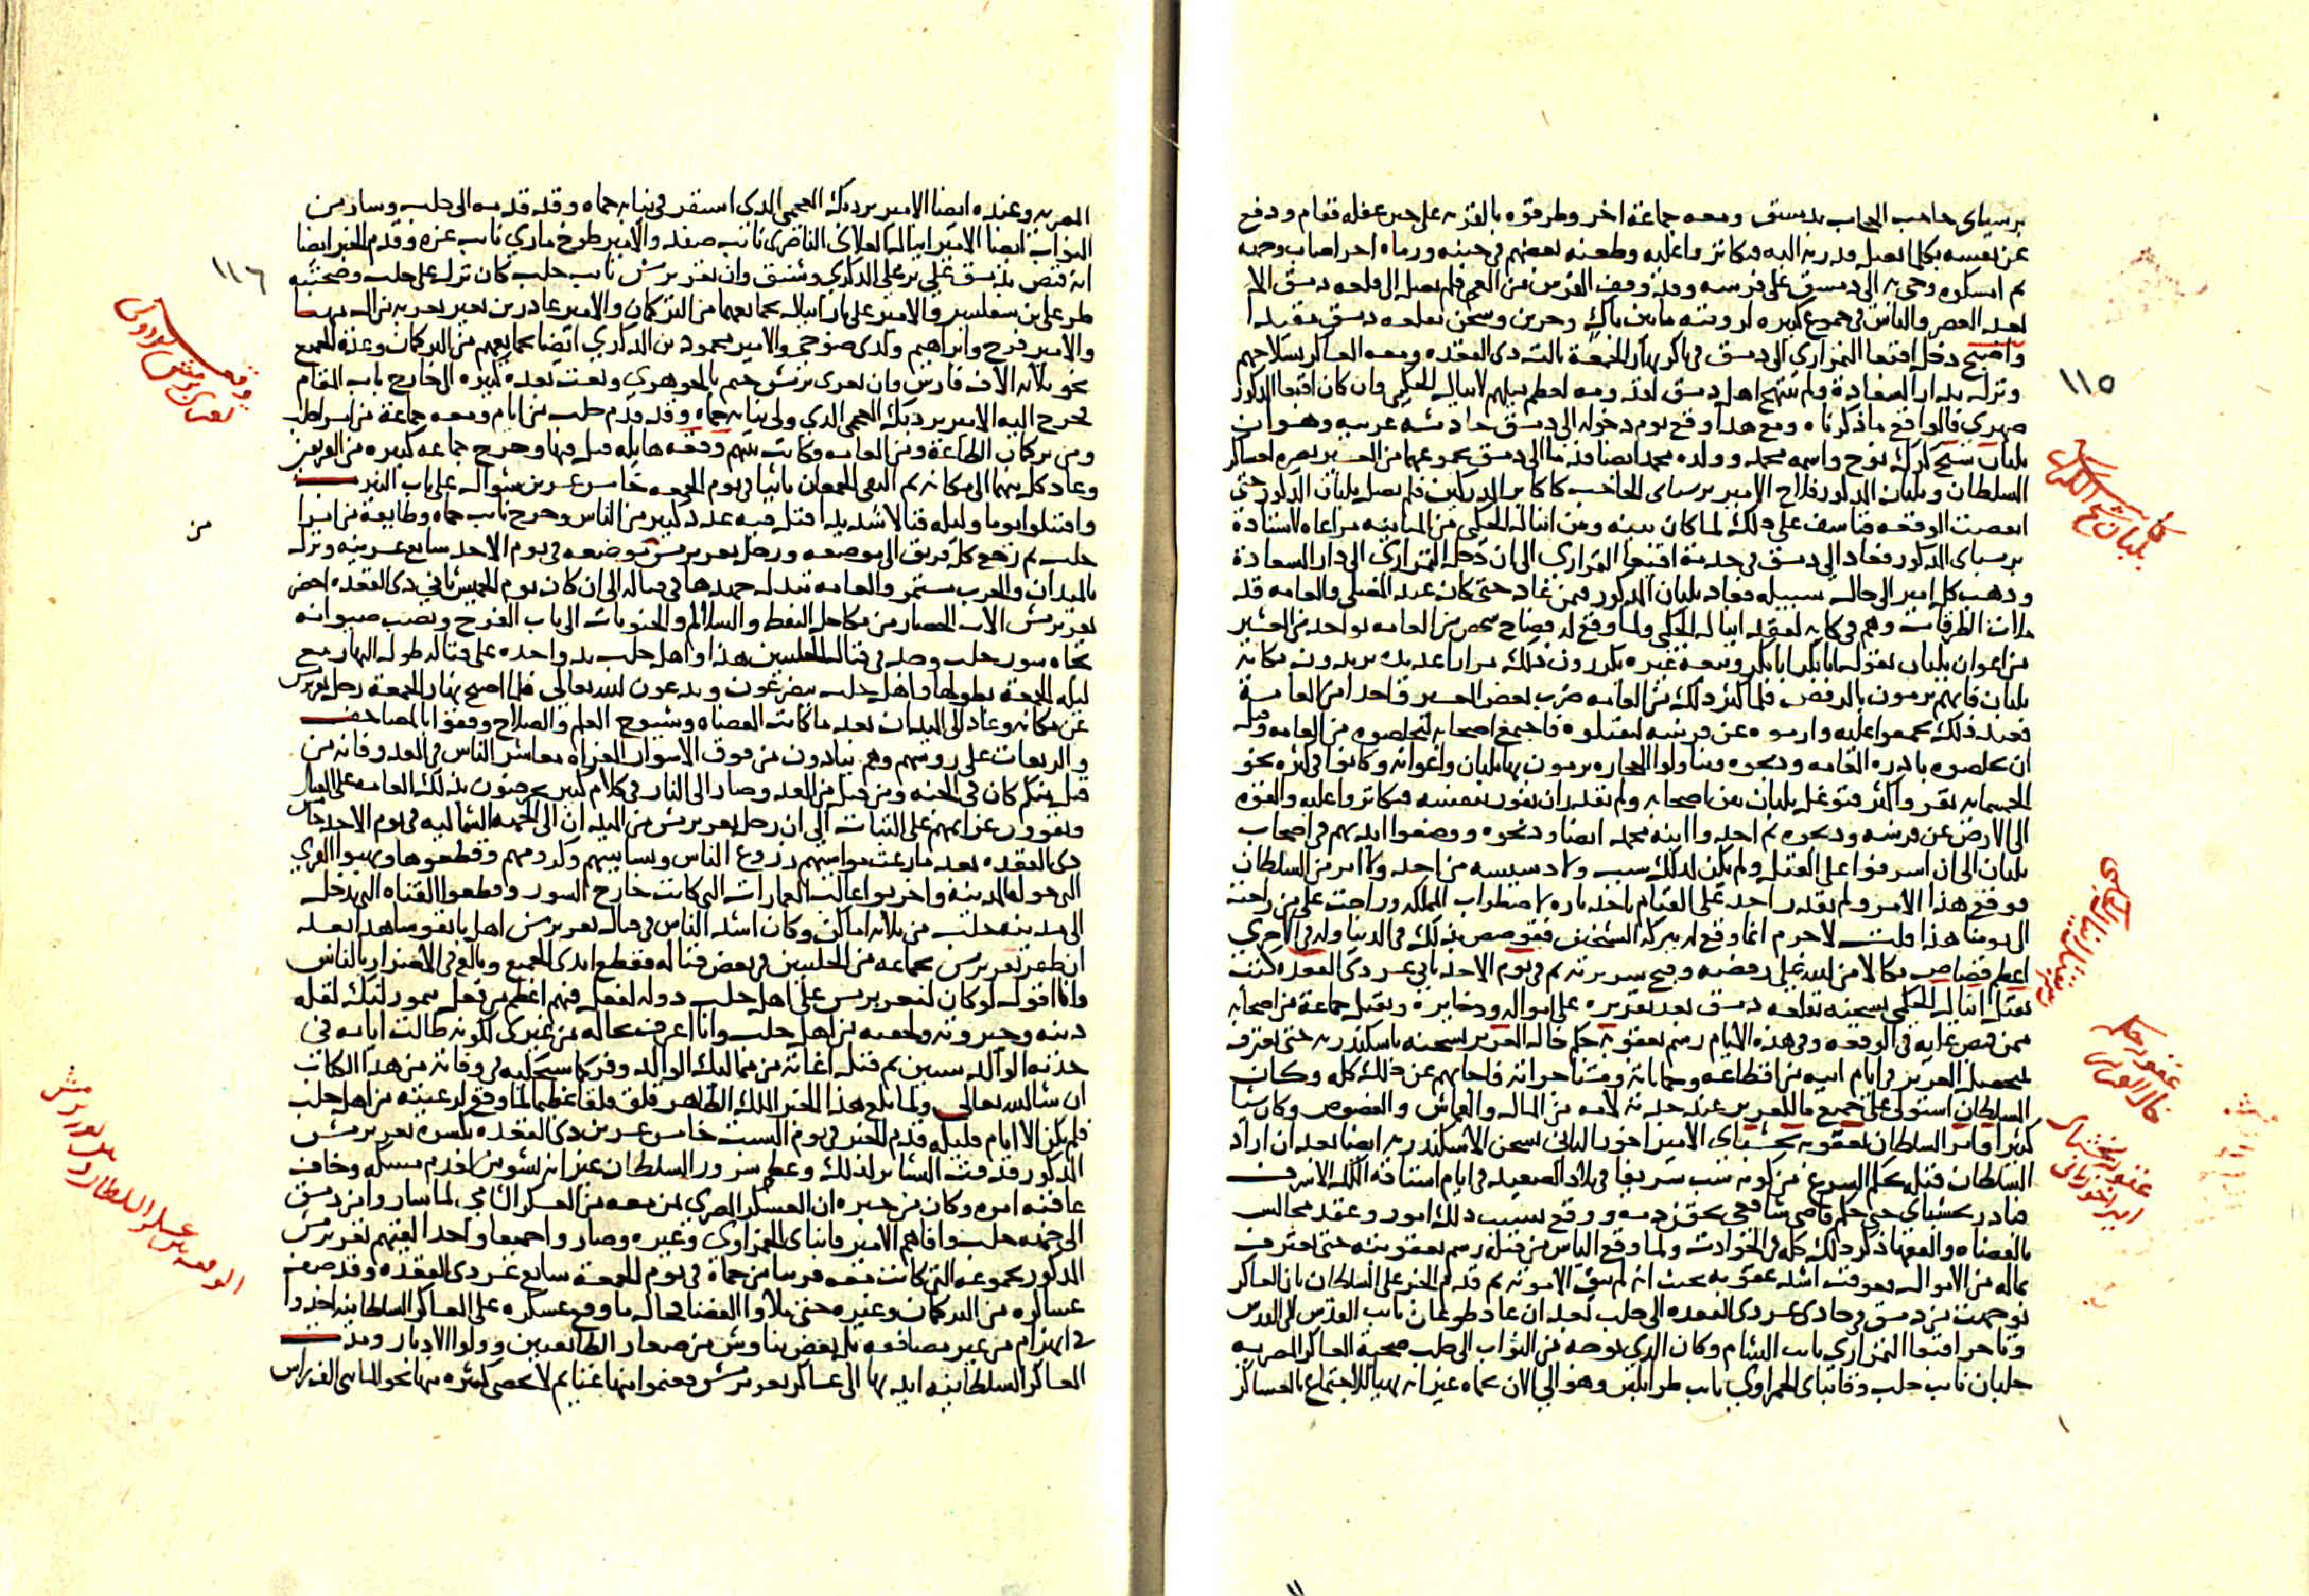 برسباى حاجب الحجاب بدمشق ومعه جماعة اخر وطرقوه بالقرية على حين غفلة فقام ودفع
عن نفسه بكل ما تصل قدرته اليه فتكاثروا عليه وطعنه بعضهم فى جنبه ورماه اخر اصاب وجهه
ثم امسكوه وجى به الى دمشق على فرسه وقد وقف الفرس من العى فلم يصل الى قلعة دمشق الا
بعد العصر والناس فى جموع كثيرة لرويته ما بين باك وحزين وسجن بقلعة دمشق مقيدا
واصبح دخل اقبغا التمرازى الى دمشق فى باكر نهار الجمعة ثالث ذى القعدة ومعه العساكر بسلاحهم
ونزل بدار السعادة ولم يبتهج اهل دمشق لقدومه لعظم ميلهم لاينال الجكمى وان كان اقبغا المذكور
صهرى فالواقع ما ذكرناه ومع هذا وقع يوم دخوله الى دمشق حادثة غريبة وهو ان
بلبان شيخ كرك نوح واسمه محمد وولده محمد ايضا قدما الى دمشق بجموعهما من العشير نصرة لعساكر
السلطان وبلبان المذكور فلاح الامير برسباى الحاجب
انقضت الوقعة فتاسف على ذلك لما كان بينه وبين اينال الجكمى من المباينة مراعاة لاستاذه
برسباى المذكور فعاد الى دمشق فى خدمة اقبغا التمرازى الى ان دخل التمرازى الى دار السعادة
وذهب كل امير الى حال سبيله فعاد بلبان المذكور فيمن عاد حتى كان عند المصلى والعامة قد
ملات الطرقات وهم فى كابة لفقد اينال الجكمى ولما وقع له فصاح شخص من العامة بواحد من العشير
من اعوان بلبان بقوله ابا بكر ابا بكر وتبعه غيره يكررون ذلك مرارا عديدة يريدون نكاية
بلبان فانهم يرمون بالرفض فلما كثر ذلك من العامة ضرب بعض العشير واحدا من العامة
فعند ذلك تجمعوا عليه وارموه عن فرسه ليقتلوه فاجتمع اصحابه ليخلصوه من العامة وقبل
ان يخلصوه بادره العامة وذبحوه وتناولوا الحجارة يرمون بها بلبان واعوانه وكانوا فى كثرة نحو
الخمسمائة نفر واكثر فتوغل بلبان بين اصحابه ولم يقدر ان يفوز بنفسه فتكاثروا عليه والقوه
الى الارض عن فرسه وذبحوه ثم اخذوا ابنه محمد ايضا وذبحوه ووضعوا ايديهم فى اصحاب
بلبان الى ان اسرفوا على القتل ولم يكن لذلك سبب ولا دسيسة من احد ولا امر من السلطان
فوقع هذا الامر ولم يقدر احد على القيام باخذ ثاره لاضطراب المملكة وراحت على من راحت
الى يومنا هذا قلت لا جرم انما وقع له ببركة الشيخين فقوصص بذلك فى الدنيا وله فى الاخرى
اعظم قصاص نكالا من الله على رفضه وقبح سريرته ثم فى يوم الاحد ثانى عشر ذى القعدة كتب
بقتل اينال الجكمى بسجنه بقلعة دمشق بعد تقريره على امواله وذخايره وبقتل جماعة من اصحابه
ممن قبض عليه فى الوقعة وفى هذه الايام رسم بعقوبة جكم خال العزيز بسجنه باسكندرية حتى يعترف
بمتحصل العزيز فى ايام ابيه من اقطاعه وحماياته ومستاجراته فاجابهم عن ذلك كله وكان
السلطان استولى على جميع ما للعزيز عند جدته لامه من المال والقماش والفصوص وكان شيا
كثيرا وامر السلطان بعقوبة يخشباى الامير اخور الثانى بسجن الاسكندرية ايضا بعد ان اراد
السلطان قتله بحكم الشرع من كونه سب شريفا فى بلاد الصعيد فى ايام استاذه الملك الاشرف
فبادر يخشباى حتى حكم قاضى شافعى بحقن دمه ووقع بسبب ذلك امور وعقد مجالس
بالقضاة والفقها ذكر ذلك كله فى الحوادث ولما وقع الياس من قتله رسم بعقوبته حتى يعترف
بماله من الاموال فعوقب اشد عقوبة بحيث انه لم يبق الا موته ثم قدم الخبر على السلطان بان العساكر
توجهت من دمشق فى حادى عشر ذى القعدة الى حلب بعد ان عاد طوغان نايب القدس الى القدس
وتاخر اقبغا التمرازى نايب الشام وكان الذى توجه من النواب الى حلب صحبة العساكر المصرية
جلبان نايب حلب وقانباى الحمزاوى نايب طرابلس وهو الى الان بحماه غير انه تهيا للاجتماع بالعساكر
١١٥
بلبان شيخ الكرك
عقوبة جكم خال العزيز
عقوبة يخشباى امير اخور ثانى
المصرية وعنده ايضا الامير بردبك العجمى الذى استقر فى نيابة حماه وقد قدم الى حلب وسار من
النواب ايضا الامير اينال العلاى الناصرى نايب صفد والامير طوخ مازى نايب غزه وقدم الخبر ايضا
انه قبض بدمشق على الدكرى وشنق وان تغرى برمش نايب حلب كان نزل على حلب وصحبته
طر على بن سقلسيز والامير على بار اينال بجمايعهما من التركمان والامير غادر بن نعير بعربه من ال مهنا
والامير فرج وابراهيم ولدى صوجى والامير محمود بن الدكرى ايضا بجمايعهم من التركمان وعدة الجميع
نحو ثلاثة الاف فارس وان تغرى برمش خيم بالجوهرى وبعث بعدة كبيرة الى خارج باب المقام
فخرج اليه الامير بردبك العجمى الذى ولى نيابة حماه وقد قدم حلب من ايام ومعه جماعة من امرا حلب
ومن تركمان الطاعة ومن العامة وكانت بينهم وقعة هايلة قتل فيها وجرح جماعة كثيرة من الفريقين
وعاد كل منهما الى مكانه ثم التقى الجمعان ثانيا فى يوم الجمعة خامس عشرين شوال على باب النيرب
واقتتلوا يوما وليلة قتالا شديدا قتل فيه عدد كبير من الناس وجرح نايب حماه وطايفة من امرا
حلب ثم رجع كل فريق الى موضعه ورحل تغرى برمش من موضعه فى يوم الاحد سابع عشرينه ونزل
بالميدان والحرب مستمر والعامة تبذل جهدها فى قتاله الى ان كان يوم الخميس ثانى ذى القعدة احضر
تغرى برمش الات الحصار من مكاحل النفط والسلالم والجنويات الى باب الفرج ونصب صيوانه
تجاه سور حلب وجد فى قتال الحلبيين هذا واهل حلب يد واحدة على قتاله طول النهار مع
ليلة الجمعة بطولها واهل حلب يتضرعون ويدعون لله تعالى فلما اصبح نهار الجمعة رحل تغرى برمش
عن مكانه وعاد الى الميدان بعد ما كانت القضاة وشيوخ العلم والصلاح وقفوا بالمصاحف
والربعات على روسهم وهم ينادون من فوق الاسوار الغزاة معاشر الناس فى العدو فانه من
قتل منكم كان فى الجنة ومن قتل من العدو صار الى النار فى كلام كثير يحرضون بذلك العامة على القتال
ويقوون عزايمهم على الثبات الى ان رحل تغرى برمش من الميدان الى الجهة الشمالية فى يوم الاحد خامس
ذى القعدة بعد ما رعت مواشيهم زروع الناس وبساتينهم وكرومهم وقطعوها ونهبوا القرى
التى حول المدينة واخربوا غالب العمارات التى كانت خارج السور وقطعوا القناة التى تدخل
الى مدينة حلب من ثلاثة اماكن وكان اشد الناس فى قتال تغرى برمش اهل بانقوسا هذا بعد
ان ظفر تغرى برمش بجماعة من الحلبيين فى بعض قتاله فقطع ايدى الجميع وبالغ فى الاضرار بالناس
وانا اقول لو كان لتغرى برمش على اهل حلب دولة لفعل فيهم اعظم من فعل تيمور لنك لقلة
دينه وجبروته ولحقه من اهل حلب وانا اعرف بحاله من غيرى لكونه طالت ايامه فى
خدمة الوالد سنين ثم قتل اغاته من مماليك الوالد وفر كما سنحكيه فى وفاته من هذا الكتاب
ان شا الله تعالى ولما بلغ هذا الخبر الملك الظاهر قلق قلقا عظيما لما وقع لرعيته من اهل حلب
فلم يكن الا ايام قليلة وقدم الخبر فى يوم السبت خامس عشرين ذى القعدة بكسرة تغرى برمش
المذكور فدقت البشاير لذلك وعظم سرور السلطان غير انه تشوش لعدم مسكه وخاف
عاقبة امره وكان من خبره ان العسكر المصرى بمن معه من العسكر الشامى لما ساروا من دمشق
الى جهة حلب وافاهم الامير قانباى الحمزاوى وغيره وصاروا جميعا واحدا لقيهم تغرى برمش
المذكور بجموعه التى كانت معه قريبا من حماة فى يوم الجمعة سابع عشر ذى القعدة وقد صف
عساكره من التركمان وغيره حتى ملاوا الفضا فحال ما وقع عسكره على العساكر السلطانية اخذوا
فى انهزام من غير مصاففة بل بعض تناوش من صغار الطايفتين وولوا الادبار ومدت
العساكر السلطانية ايديها الى عساكر تغرى برمش فغنموا منها غنايم لا تحصى كثرة منها نحو المايتى الف راس
١١٦